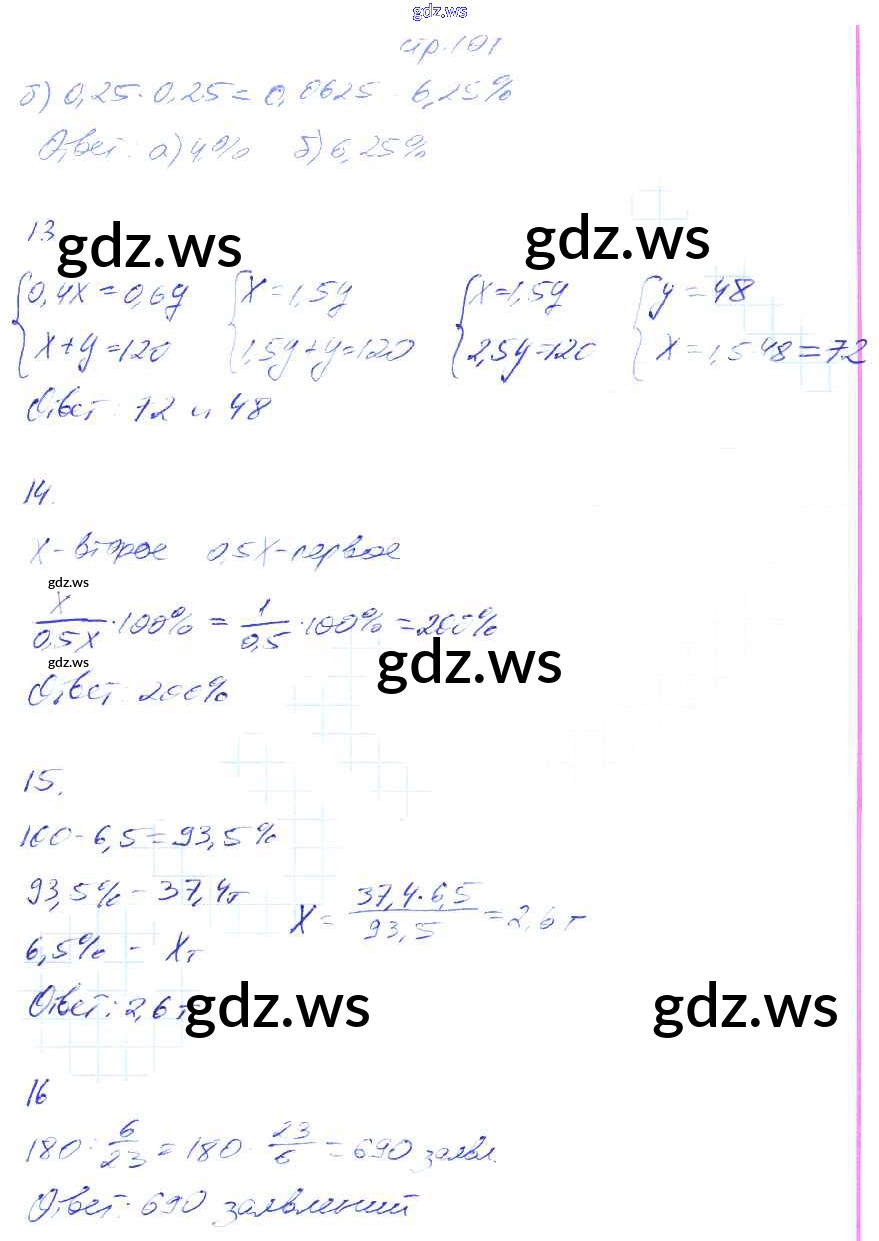 gdz.ws
стр. 101
б) 0,25 · 0,25 = 0,0625 · 6,25%
Ответ: а) 4% б) 6,25%
13
gdz.ws
gdz.ws
0,4x = 0,6y x = 1,5y x = 1,5y y = 48
x + y = 120 1,5y + y = 120 2,5y = 120 x = 1,5·48 = 72
Ответ: 72 и 48
14.
x - второе 0,5x - первое
gdz.ws
x/0,5x · 100% = 1/0,5 · 100% = 200%
gdz.ws
gdz.ws
Ответ: 200%
15.
100 - 6,5 = 93,5%
93,5% - 37,4т
6,5% - xт x = 37,4·6,5/93,5 = 2,6 т
Ответ: 2,6 т
gdz.ws
gdz.ws
16
180 : 6/23 = 180 · 23/6 = 690 заявл.
Ответ: 690 заявлений